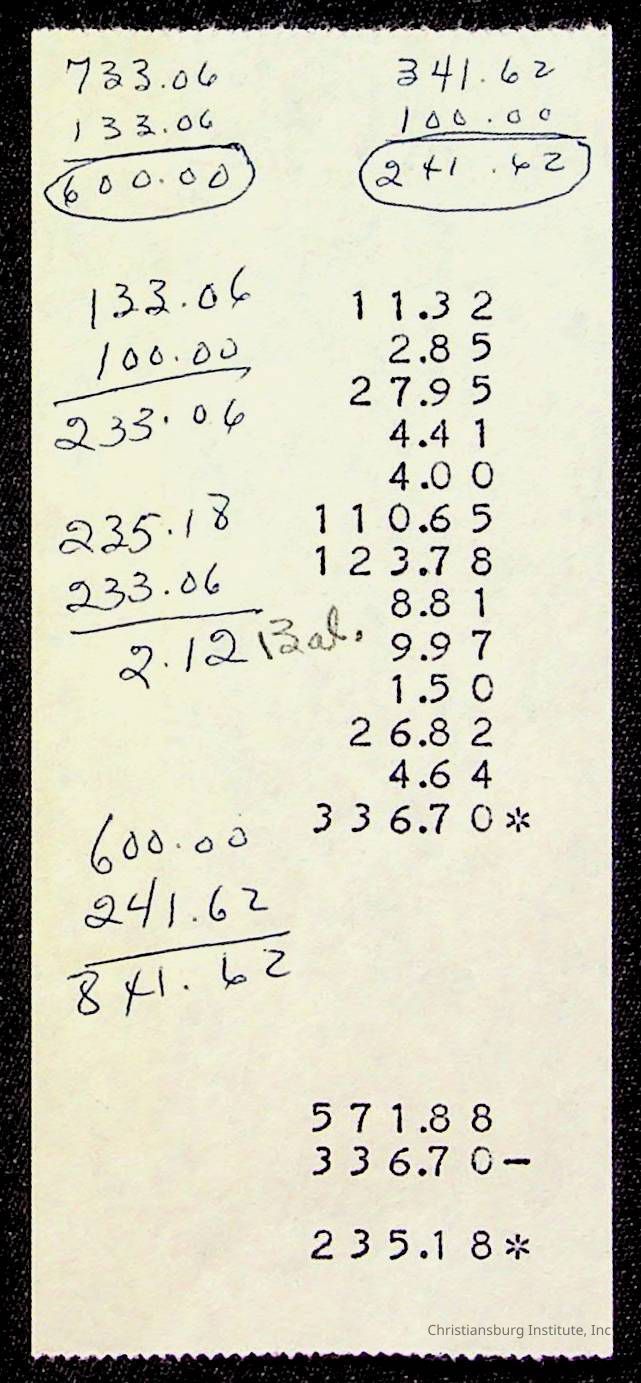 733.06
133.06
600.00
341.62
100.00
241.62
133.06
100.00
233.06
235.18
233.06
2.12 Bal.
600.00
241.62
841.62
11.32
2.85
27.95
4.41
4.00
110.65
123.78
8.81
9.97
1.50
26.82
4.64
336.70*
571.88
336.70-
235.18*
Christiansburg Institute, Inc